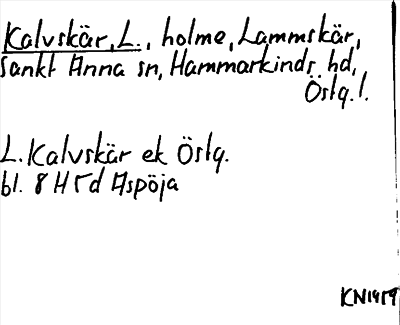 Kalvskär, L., holme, Lammskär,
Sankt Anna sn, Hammarkinds hd,
Östg.l.
L. Kalvskär ek Östg.
bl. 8 H 5 d Aspöja
KN1959